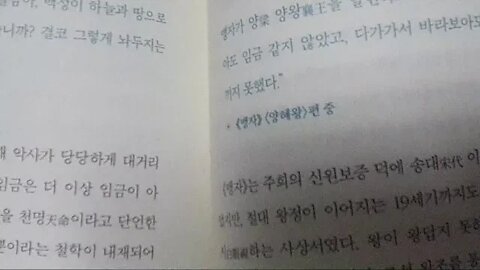 백성이 하늘과 땅으로
니까? 결코 그렇게 놔두지는
악사가 당당하게 대거리
임금은 더 이상 임금이 아
을 천명天命이라고 단언한
이라는 철학이 내재되어
맹자가 양梁 양왕襄王을
아도 임금 같지 않았고, 다가가서 바라보아도
까지 못했다.”
•《맹자》〈양혜왕〉편 중
《맹자》는 주희의 신원보증 덕에 송대宋代 이
절대 왕정이 이어지는 19세기까지도
하는 사상서였다. 왕이 왕답지 못하